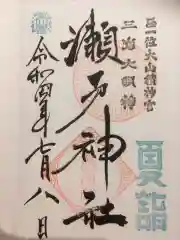 正一位大山積神宮
三嶋大明神
夏詣
瀬戸神社
令和四年七月八日